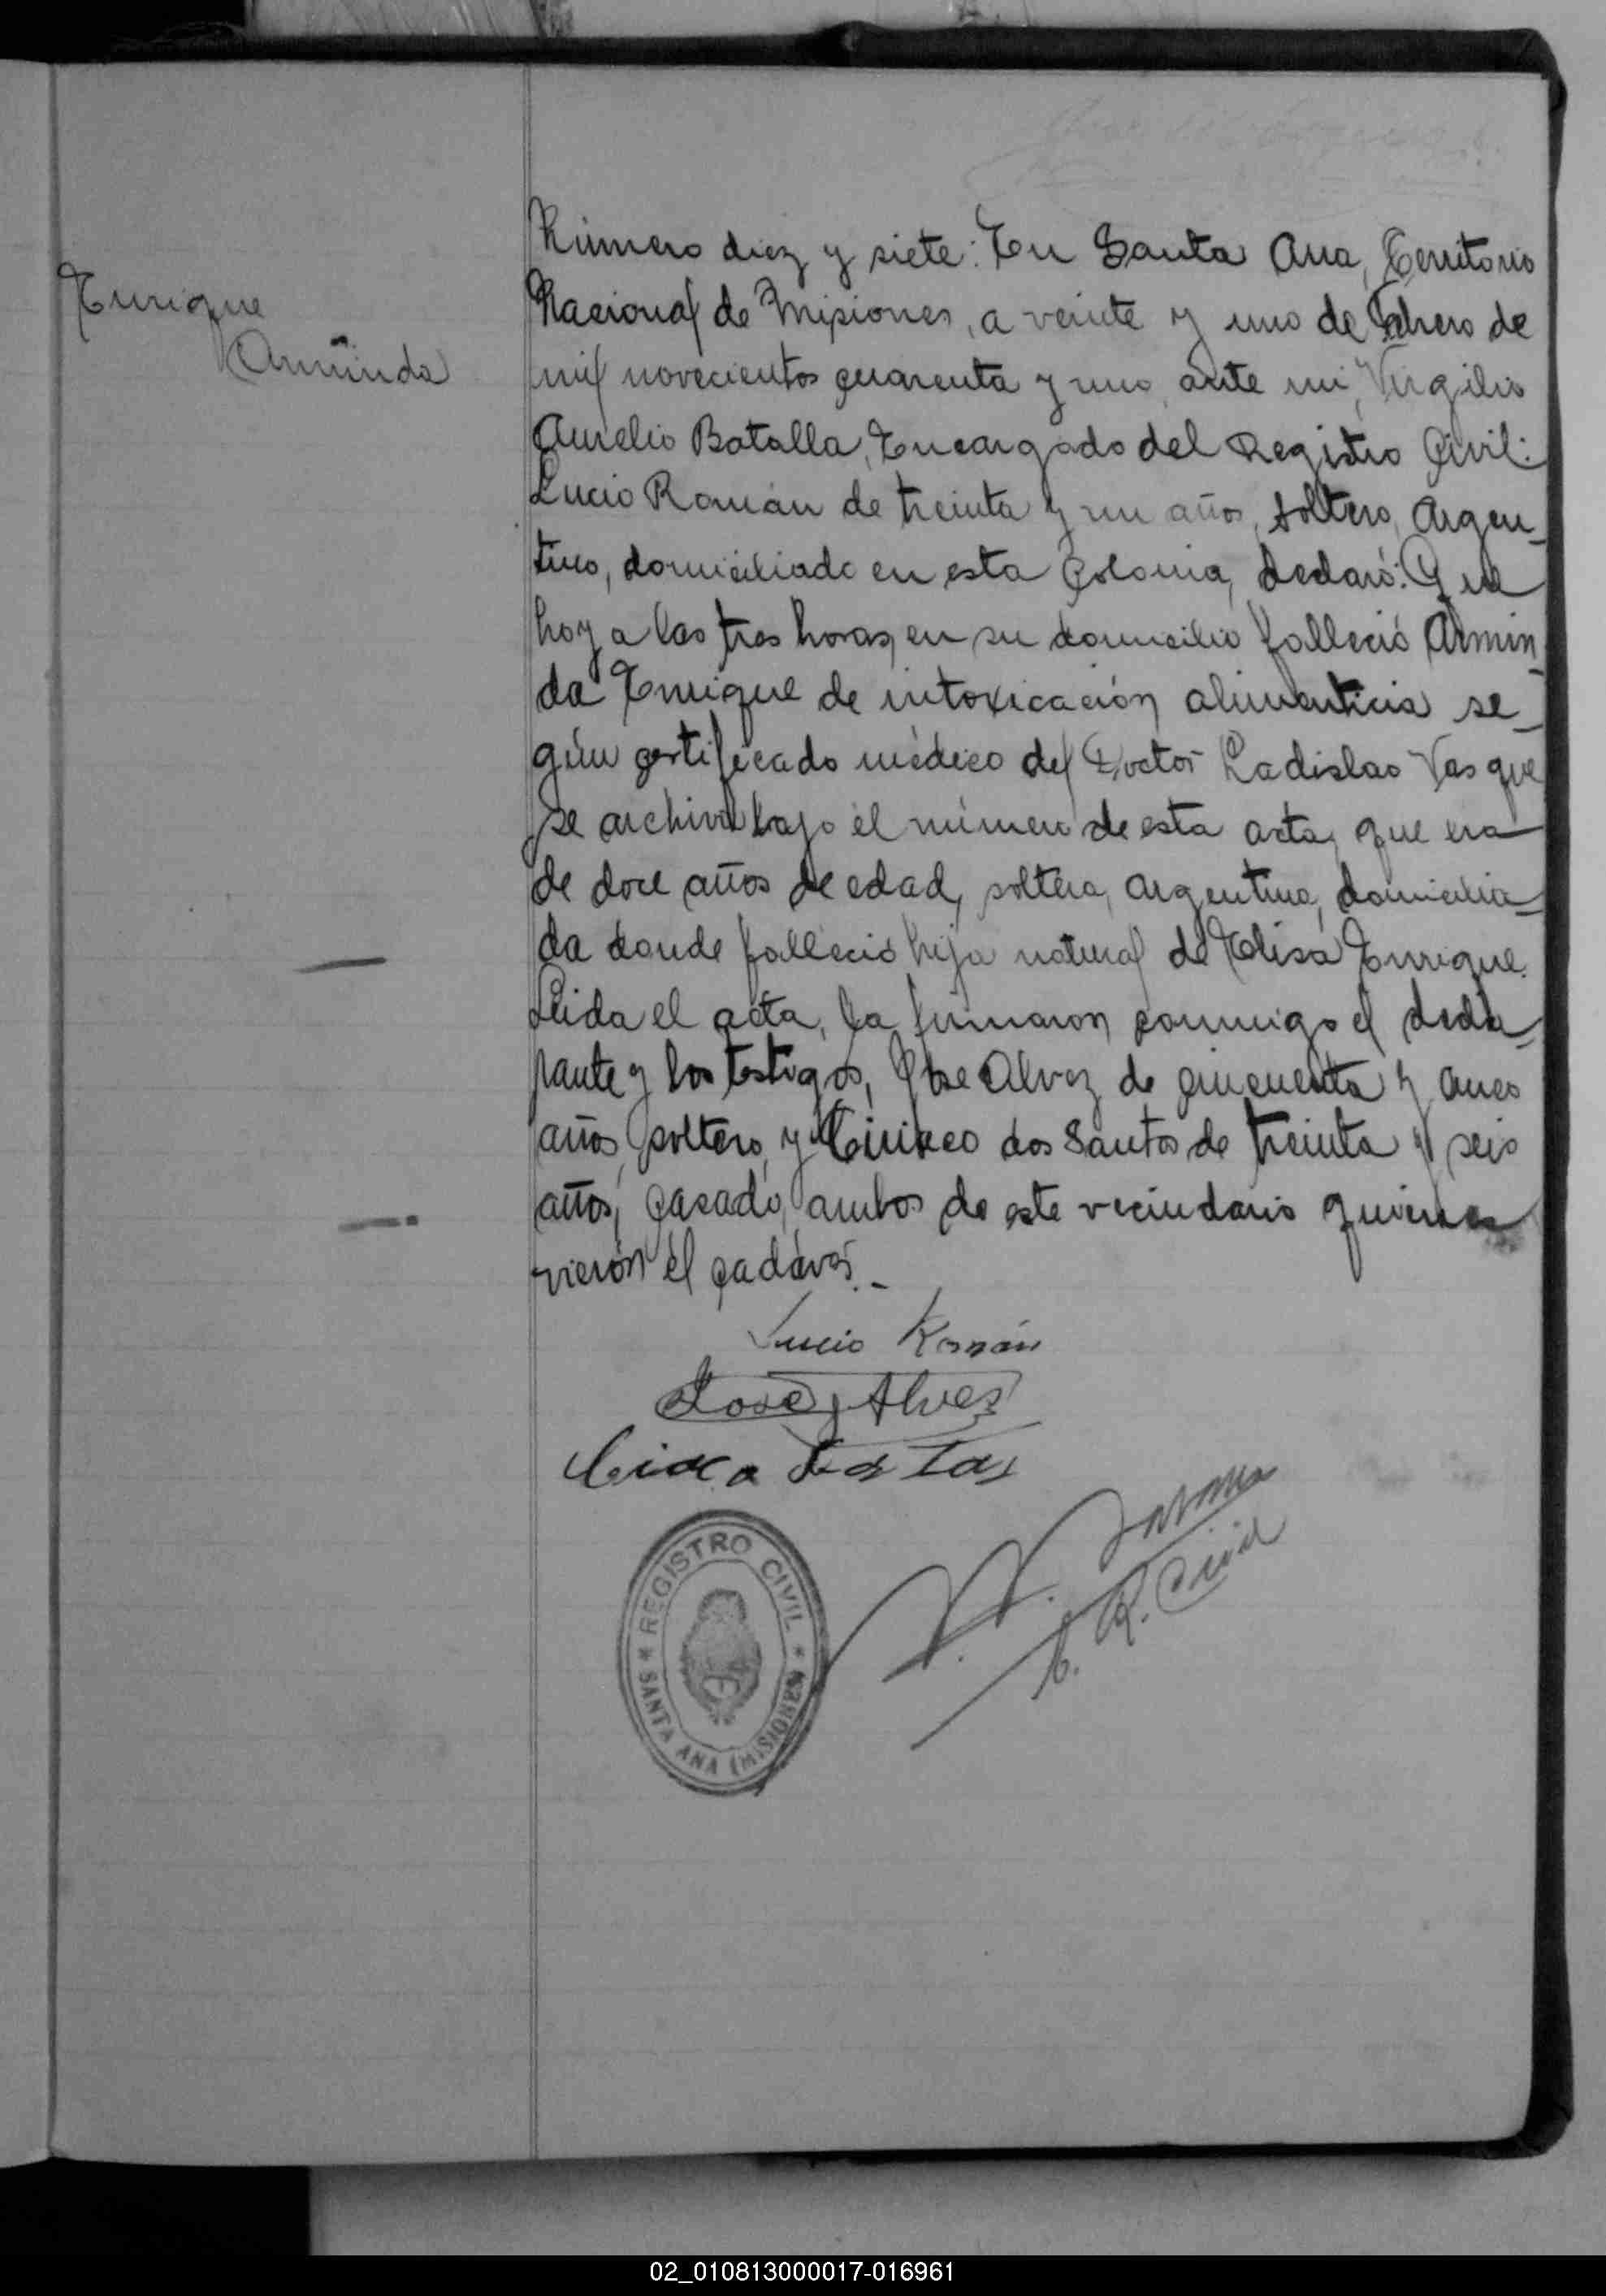 Enrique
Arminda
Número diez y siete: En Santa Ana, Territorio
Nacional de Misiones, a veinte y uno de Febrero de
mil novecientos cuarenta y uno, ante mi, Virgilio
Aurelio Batalla, Encargado del Registro Civil:
Lucio Román de treinta y un años, soltero, Argen-
tino, domiciliado en esta Colonia, declaró: Que
hoy a las tres horas, en su domicilio falleció Armin-
da Enrique de intoxicación alimenticia se-
gún certificado médico del Doctor Ladislao Vas que
se archiva bajo el número de esta acta, que era
de doce años de edad, soltera, argentina, domicilia-
da donde falleció hija natural de Elisa Enrique.
Leida el acta, la firmaron conmigo el decla-
rante y los testigos, José Alvez de cincuenta y
años, soltero, y Ciriaco dos Santos de treinta y seis
años, casado, ambos de este vecindario quienes
vieron el cadáver.-
Lucio Román
Jose Alves
R. Civil
REGISTRO CIVIL
* SANTA ANA (MISIONES) *
02_010813000017-016961